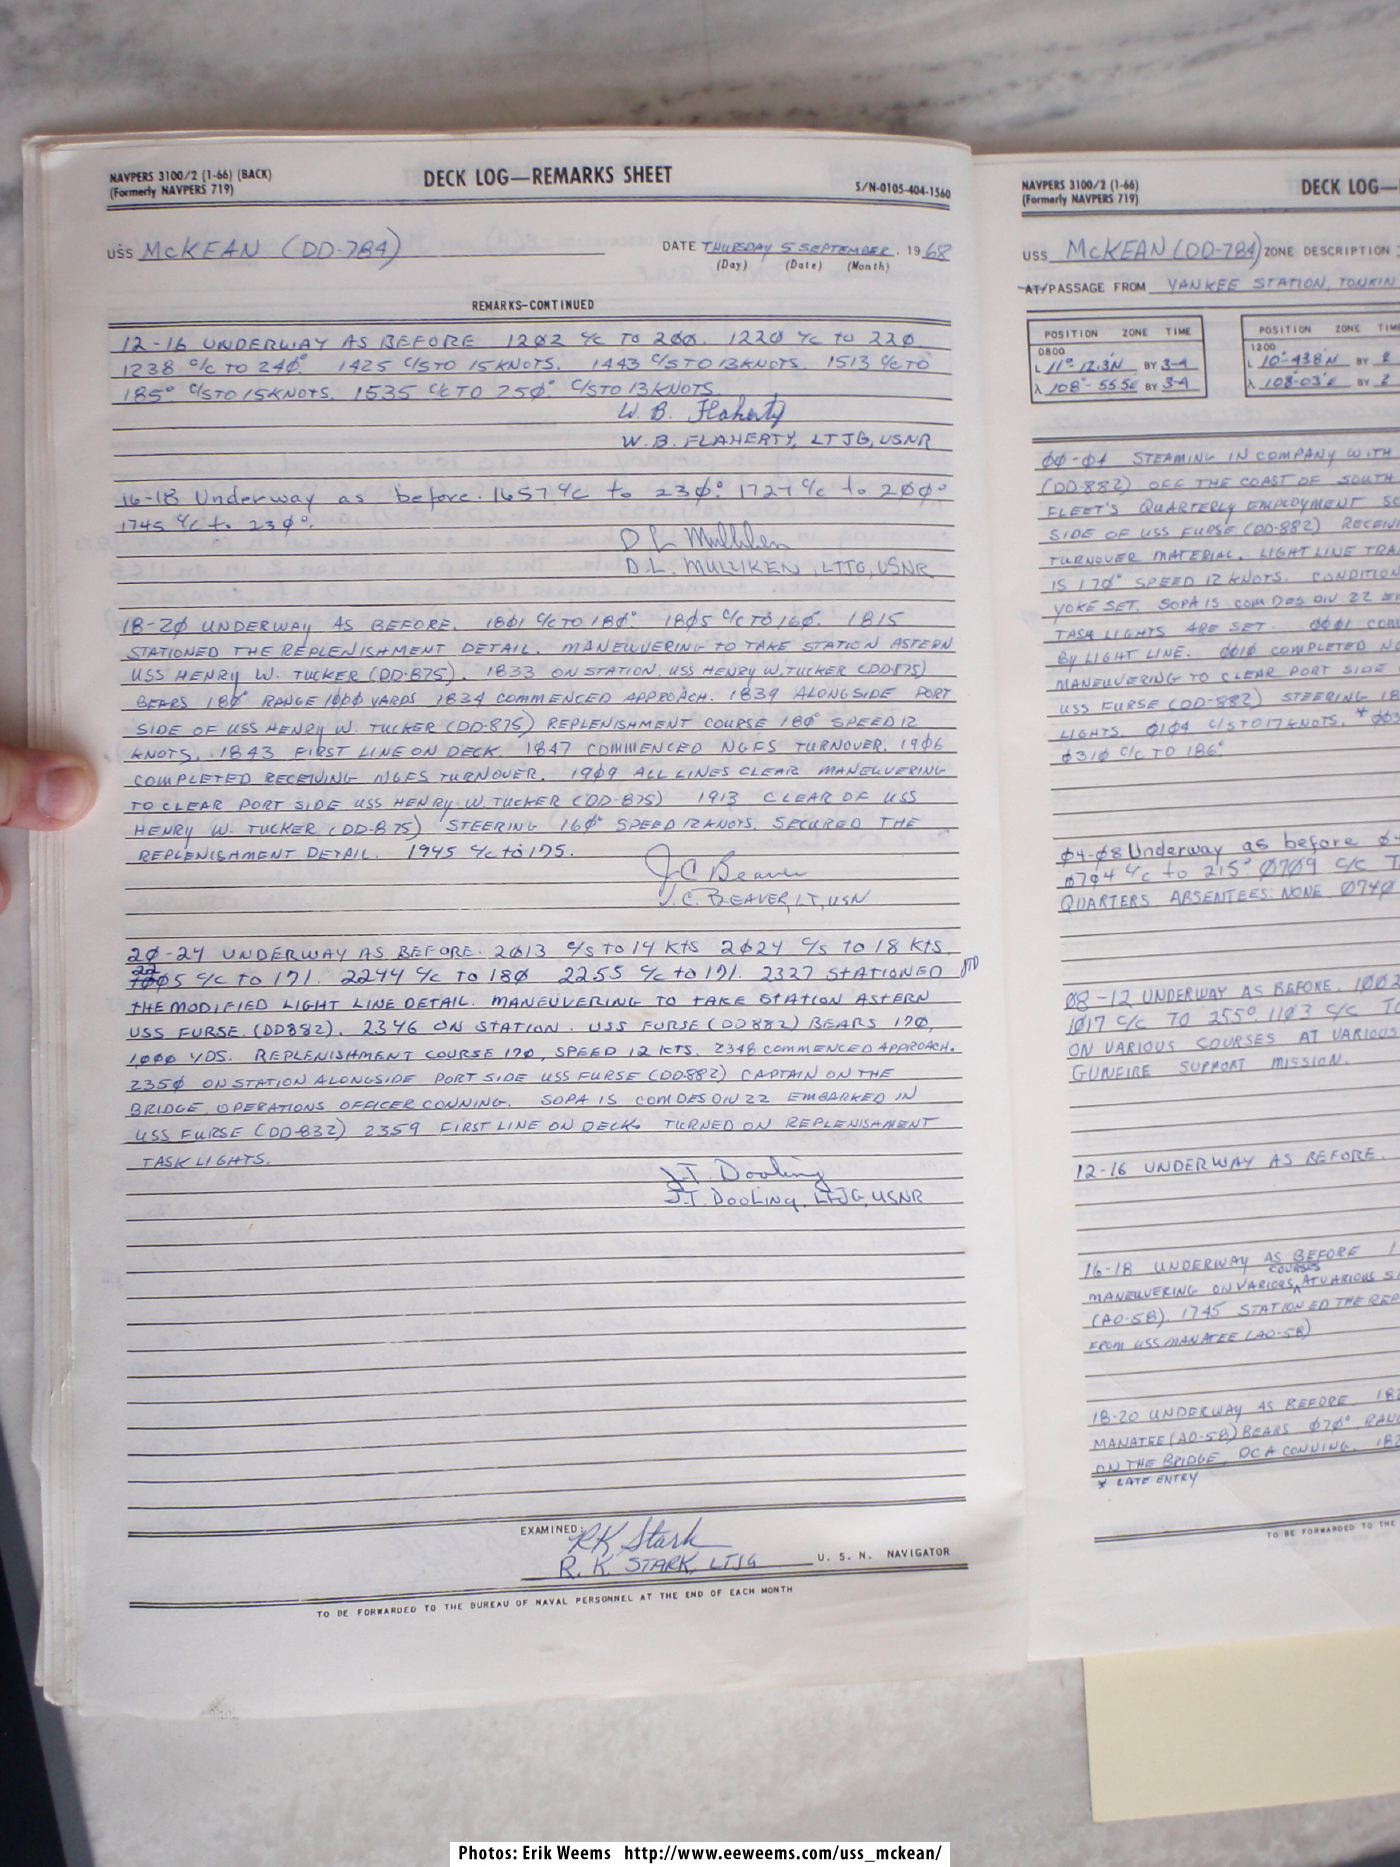 NAVPERS 3100/2 (1-66) (BACK)
(Formerly NAVPERS 719)
DECK LOG—REMARKS SHEET
S/N-0105-404-1560
USS McKEAN (DD-784)
DATE THURSDAY 5 SEPTEMBER, 1968
(Day) (Date) (Month)
REMARKS-CONTINUED
12-16 UNDERWAY AS BEFORE 1202 c/c TO 200. 1220 c/c to 220
1238 c/c TO 240° 1425 C/S TO 15 KNOTS. 1443 C/S TO 13 KNOTS. 1513 c/c TO
185° C/S TO 15 KNOTS. 1535 C/C TO 250° C/S TO 13 KNOTS.
W. B. Flaherty
W. B. FLAHERTY, LTJG, USNR
16-18 Underway as before. 1657 c/c to 230° 1727 c/c to 200°
1745 c/c to 230°.
D L Mulliken
D.L. MULLIKEN, LTJG, USNR
18-20 UNDERWAY AS BEFORE. 1801 c/c TO 180° 1805 C/C TO 160. 1815
STATIONED THE REPLENISHMENT DETAIL. MANEUVERING TO TAKE STATION ASTERN
USS HENRY W. TUCKER (DD-875). 1833 ON STATION, USS HENRY W. TUCKER (DD875)
BEARS 180° RANGE 1000 YARDS 1834 COMMENCED APPROACH. 1839 ALONGSIDE PORT
SIDE OF USS HENRY W. TUCKER (DD-875) REPLENISHMENT COURSE 180° SPEED 12
KNOTS. 1843 FIRST LINE ON DECK 1847 COMMENCED NGFS TURNOVER. 1906
COMPLETED RECEIVING NGFS TURNOVER. 1909 ALL LINES CLEAR MANEUVERING
TO CLEAR PORT SIDE USS HENRY W. TUCKER (DD-875) 1913 CLEAR OF USS
HENRY W. TUCKER (DD-875) STEERING 160° SPEED 12 KNOTS. SECURED THE
REPLENISHMENT DETAIL. 1945 c/c to 175.
J C Beaver
J. C. BEAVER, LT, USN
20-24 UNDERWAY AS BEFORE. 2013 c/s TO 14 KTS 2024 c/s to 18 KTS
2205 c/c to 171. 2244 c/c to 180 2255 c/c to 171. 2327 STATIONED JTD
THE MODIFIED LIGHT LINE DETAIL. MANEUVERING TO TAKE STATION ASTERN
USS FURSE (DD882). 2346 ON STATION. USS FURSE (DD882) BEARS 170,
1,000 YDS. REPLENISHMENT COURSE 170, SPEED 12 KTS. 2348 COMMENCED APPROACH.
2350 ON STATION ALONGSIDE PORT SIDE USS FURSE (DD882) CAPTAIN ON THE
BRIDGE, OPERATIONS OFFICER CONNING. SOPA IS COMDESDIV 22 EMBARKED IN
USS FURSE (DD-832) 2359 FIRST LINE ON DECK. TURNED ON REPLENISHMENT
TASK LIGHTS.
J.T. Dooling
J.T. DOOLING, LTJG, USNR
EXAMINED:
RK Stark
R. K. STARK, LTJG U. S. N. NAVIGATOR
TO BE FORWARDED TO THE BUREAU OF NAVAL PERSONNEL AT THE END OF EACH MONTH
NAVPERS 3100/2 (1-66)
(Formerly NAVPERS 719)
DECK LOG—
USS McKEAN (DD-784) ZONE DESCRIPTION
AT/PASSAGE FROM YANKEE STATION, TONKIN
POSITION ZONE TIME
0800
L 11° 12.3N BY 3-4
λ 108°-55.5E BY 3-4
POSITION ZONE TIM
1200
L 10°-43.8N BY 2
λ 108°-03'E BY 2
00-04 STEAMING IN COMPANY WITH
(DD-882) OFF THE COAST OF SOUTH
FLEET'S QUARTERLY EMPLOYMENT SC
SIDE OF USS FURSE (DD-882) RECEIV
TURNOVER MATERIAL. LIGHT LINE TRA
IS 170° SPEED 12 KNOTS. CONDITION
YOKE SET. SOPA IS COMDESDIV 22 EM
TASK LIGHTS ARE SET. 0001 COM
BY LIGHT LINE. 0010 COMPLETED NG
MANEUVERING TO CLEAR PORT SIDE
USS FURSE (DD-882) STEERING 18
LIGHTS. 0104 C/S TO 17 KNOTS. * 003
0310 C/C TO 186°
04-08 Underway as before 04
0704 c/c to 215° 0709 C/C T
QUARTERS ABSENTEES: NONE 0740
08-12 UNDERWAY AS BEFORE. 1002
1017 C/C TO 255°. 1103 C/C TO
ON VARIOUS COURSES AT VARIOUS
GUNFIRE SUPPORT MISSION.
12-16 UNDERWAY AS BEFORE.
16-18 UNDERWAY AS BEFORE 1
MANEUVERING ON VARIOUS COURSES AT VARIOUS S
(AO-58). 1745 STATIONED THE REP
FROM USS MANATEE (AO-58)
18-20 UNDERWAY AS BEFORE 182
MANATEE (AO-58) BEARS 070°, RAN
ON THE BRIDGE, DCA CONNING. 182
* LATE ENTRY
TO BE FORWARDED TO THE
Photos: Erik Weems http://www.eeweems.com/uss_mckean/